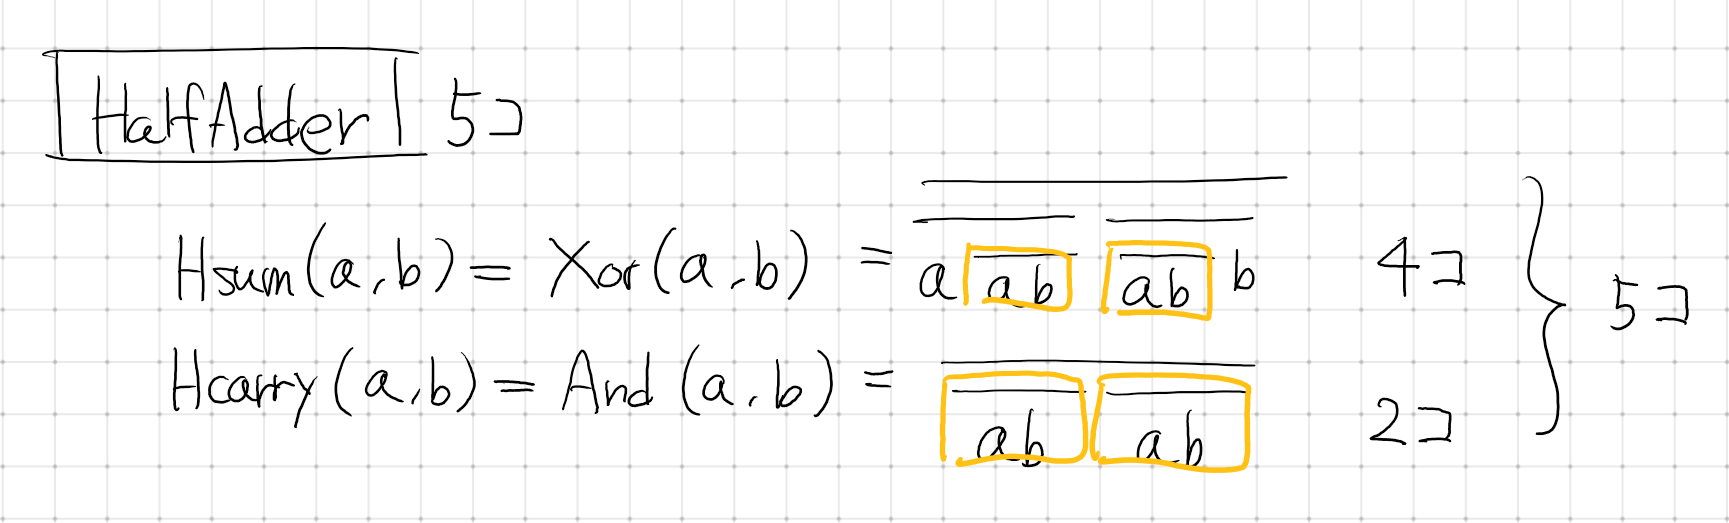 HalfAdder 5コ
Hsum(a,b) = Xor(a,b) = \overline{\overline{a\overline{ab}}\ \overline{\overline{ab}b}} 4コ
5コ
Hcarry(a,b) = And(a,b) = \overline{\overline{ab}\ \overline{ab}} 2コ